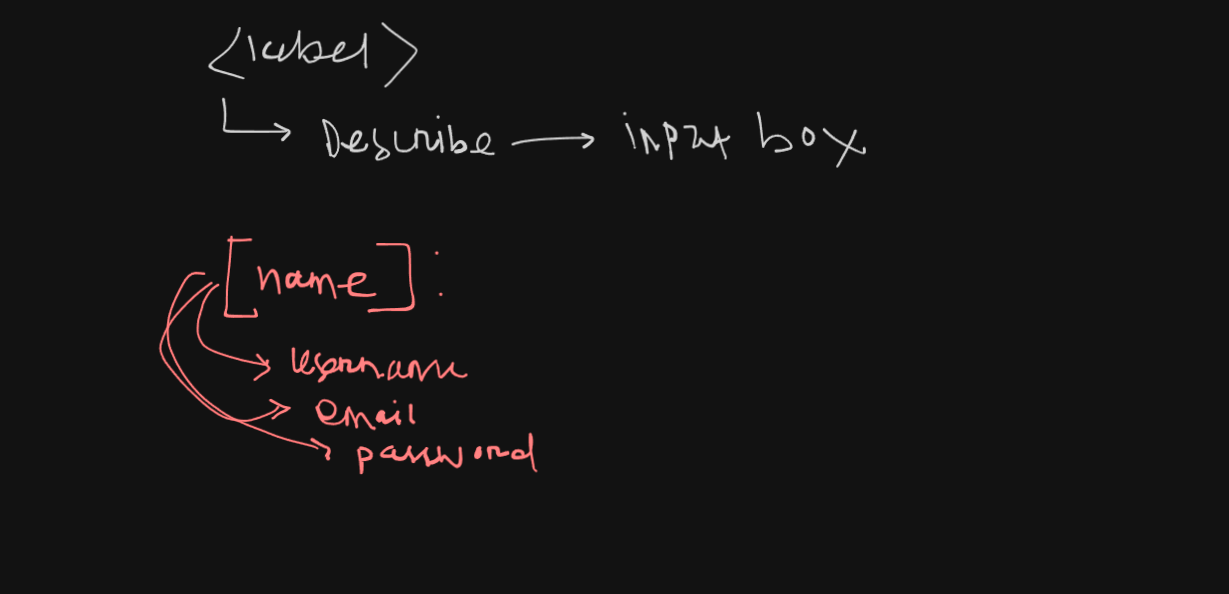 <label>
Describe → input box
[name] :
username
email
password